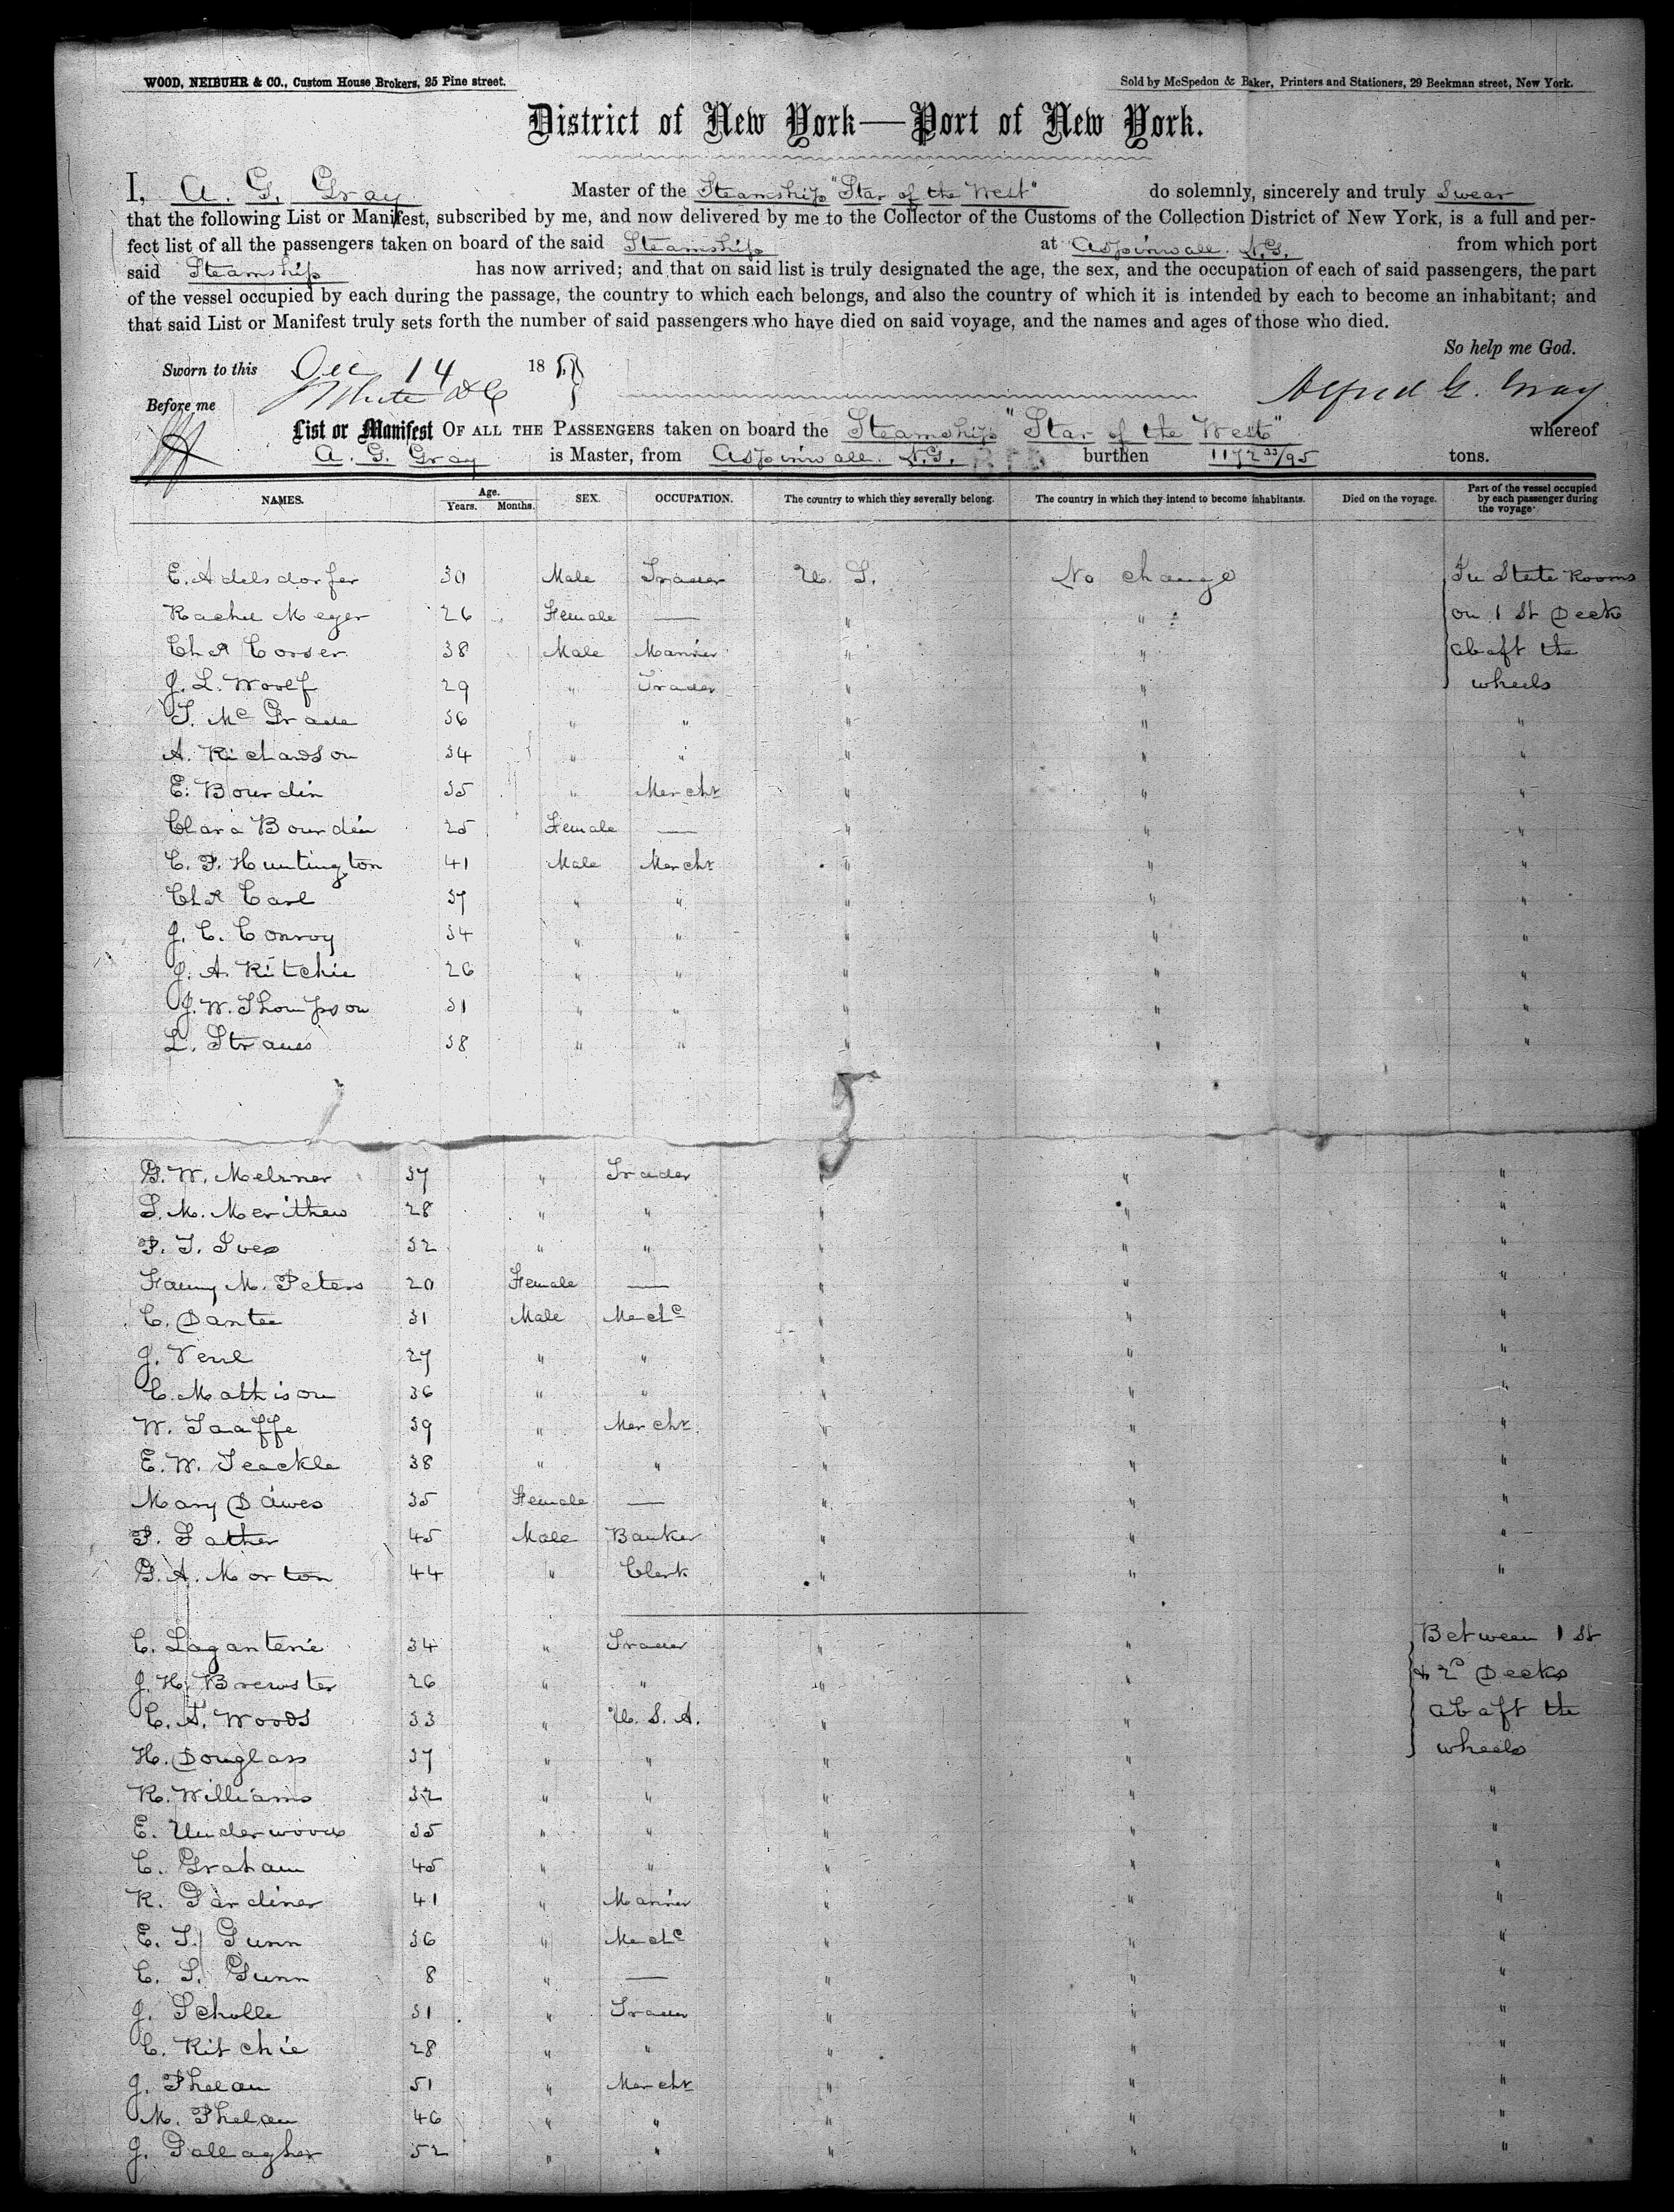 WOOD, NEIBUHR & CO., Custom House Brokers, 25 Pine street. Sold by McSpedon & Baker, Printers and Stationers, 29 Beekman street, New York.
District of New York—Port of New York.
I, A. G. Gray Master of the Steamship "Star of the West" do solemnly, sincerely and truly Swear
that the following List or Manifest, subscribed by me, and now delivered by me to the Collector of the Customs of the Collection District of New York, is a full and per-
fect list of all the passengers taken on board of the said Steamship at Aspinwall. N.G. from which port
said Steamship has now arrived; and that on said list is truly designated the age, the sex, and the occupation of each of said passengers, the part
of the vessel occupied by each during the passage, the country to which each belongs, and also the country of which it is intended by each to become an inhabitant; and
that said List or Manifest truly sets forth the number of said passengers who have died on said voyage, and the names and ages of those who died.
So help me God.
Sworn to this Dec 14 18
Before me Alfred G. Gray
List or Manifest OF ALL THE PASSENGERS taken on board the Steamship "Star of the West" whereof
A. G. Gray is Master, from Aspinwall. N.G. burthen 1172 33/95 tons.
NAMES. Age. Years. Months. SEX. OCCUPATION. The country to which they severally belong. The country in which they intend to become inhabitants. Died on the voyage. Part of the vessel occupied by each passenger during the voyage.
E. Adelsdorfer 30 Male Trader U. S. No change In State Rooms
Rachel Meyer 26 Female — " " on 1st Deck
Chs Corser 38 Male Mariner " " abaft the
J. L. Woolf 29 " Trader " " wheels
T. McGrade 36 " " " " "
A. Richardson 34 " " " " "
E. Bourdin 35 " Mercht " " "
Clara Bourdin 25 Female — " " "
C. P. Huntington 41 Male Mercht " " "
Chs Carl 37 " " " " "
J. C. Conroy 34 " " " " "
J. A. Ritchie 26 " " " " "
J. W. Thompson 31 " " " " "
L. Straus 38 " " " " "
G. W. Melzner 37 " Trader " " "
S. M. Merithew 28 " " " " "
P. T. Ives 32 " " " " "
Fanny M. Peters 20 Female — " " "
C. Dantee 31 Male Mechc " " "
J. 27 " " " " "
C. Mathison 36 " " " " "
W. Taaffe 39 " Mercht " " "
E. W. Teackle 38 " " " " "
Mary Dawes 35 Female — " " "
P. Father 45 Male Banker " " "
G. A. Morton 44 " Clerk " " "
C. Laganterie 34 " Trader " " Between 1st
J. H. Brewster 26 " " " " & 2d Decks
C. A. Woods 33 " U. S. A. " " abaft the
H. Douglass 37 " " " " wheels
R. Williams 32 " " " " "
E. Underwood 35 " " " " "
C. Graham 45 " " " " "
R. Gardiner 41 " Mariner " " "
E. T. Gunn 36 " Mechc " " "
C. S. Gunn 8 " — " " "
J. Scholle 31 " Trader " " "
C. Ritchie 28 " " " " "
J. Phelan 51 " Mercht " " "
M. Phelan 46 " " " " "
J. Gallagher 52 " " " " "